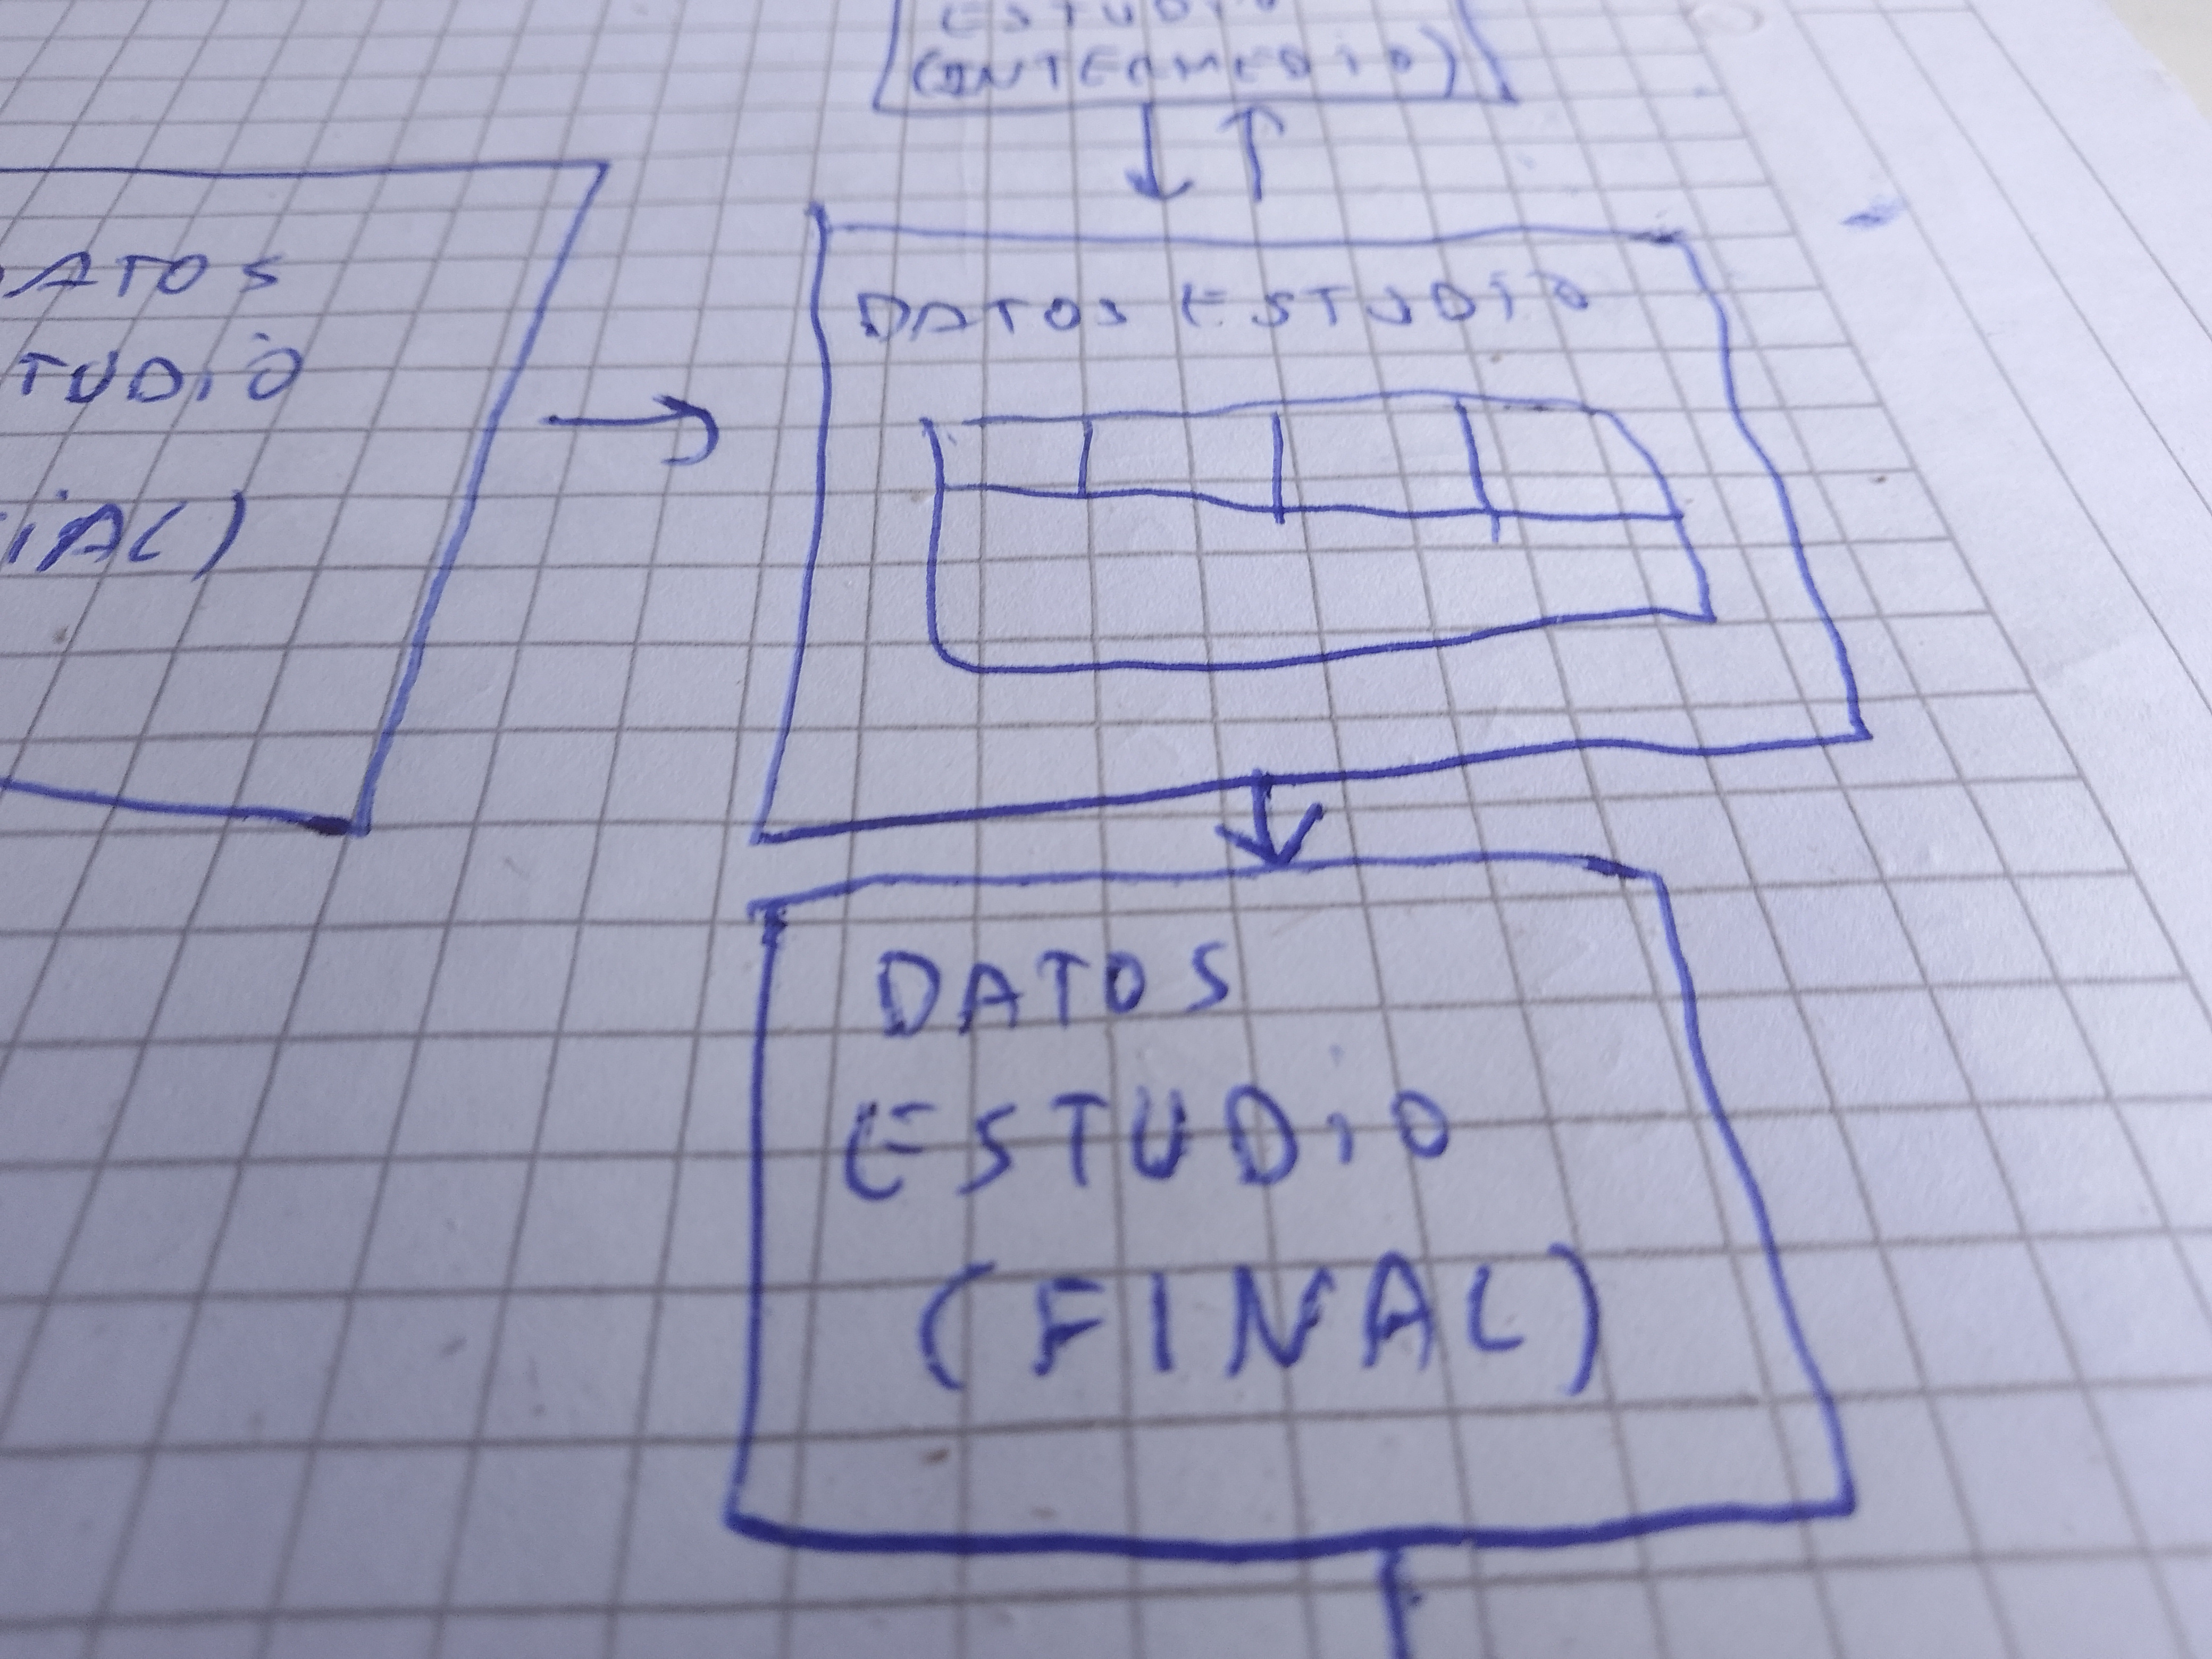 ESTUDiO
(INTERMEDiO)
ATOS
TUDiO
iAL)
DATOS ESTUDiO
DATOS
ESTUDiO
(FINAL)